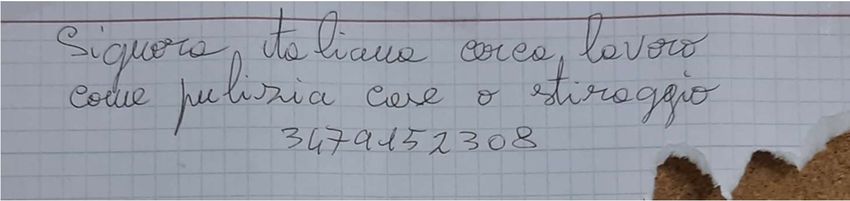 Signora italiana cerca lavoro
come pulizia case o stiraggio
3479152308